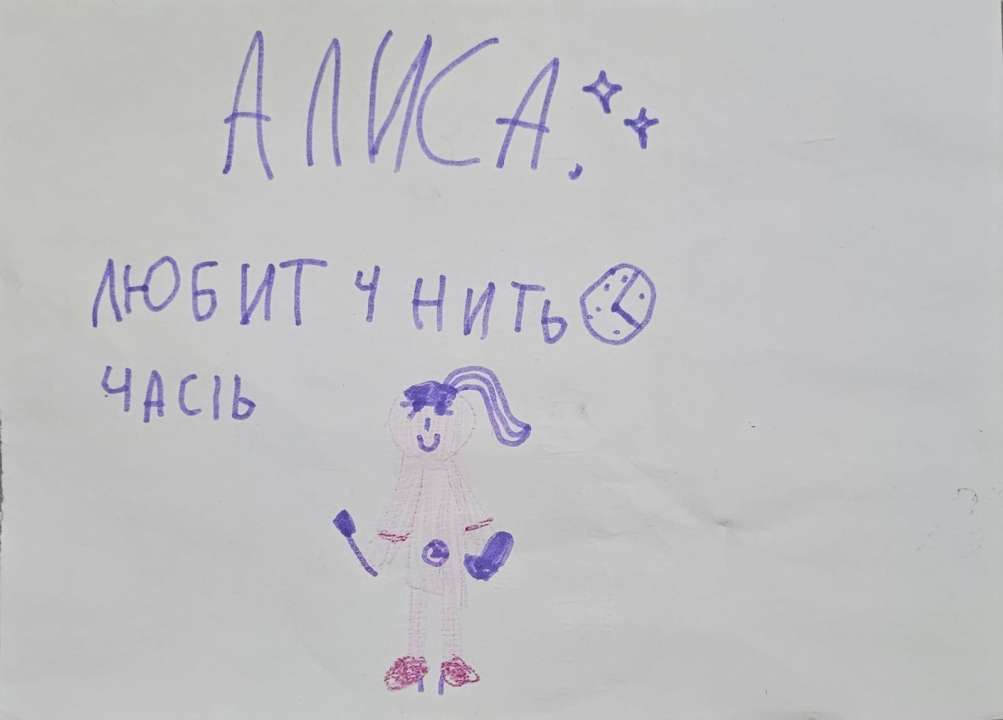 АЛИСА.
ЛЮБИТ ЧНИТЬ
ЧАСІЬ